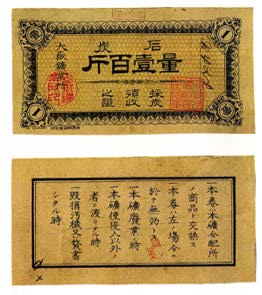 石炭
量壹百斤
採炭
領収
之證
一本券ハ本礦分配所
ノ商品ト交換ス
一本券ハ左ノ場合ニ
於テ無効トス
一本礦廃業ノ時
一本礦使役人以外ノ
者ニ渡リタル時
一毀損汚穢又ハ贅書
シタル時